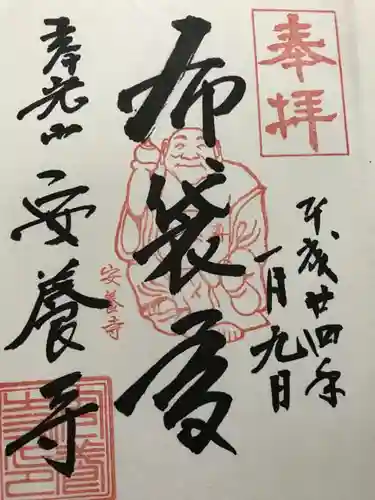 奉拝
平成廿四年
一月九日
布袋尊
安養寺
寿光山
安養寺